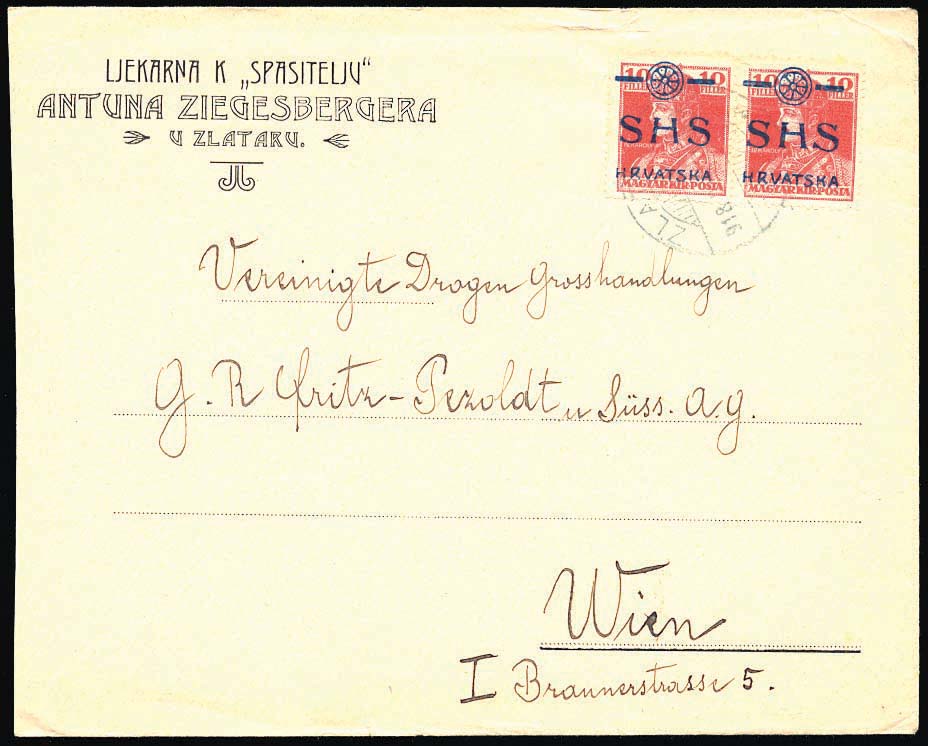 LJEKARNA K „SPASITELJU“
ANTUNA ZIEGESBERGERA
U ZLATARU.
10 FILLER 10 FILLER
SHS
HRVATSKA
MAGYAR KIR. POSTA
10 FILLER 10 FILLER
SHS
HRVATSKA
MAGYAR KIR. POSTA
ZLA
918
Vereinigte Drogen Grosshandlungen
G. R. Fritz - Pezoldt u Süss. A.G.
Wien
I Braunerstrasse 5.